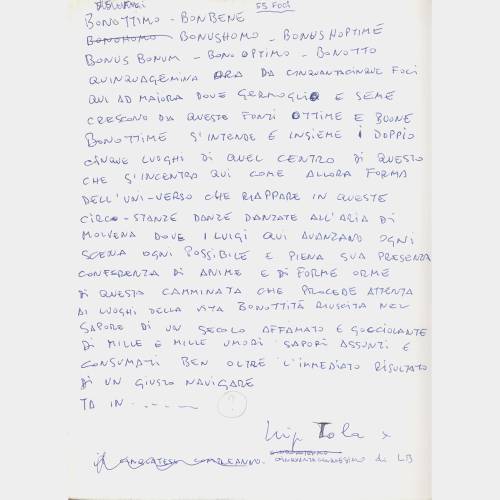 55 FOCI
BONOTTIMO - BONBENE
BONOHOMO BONUSHOMO - BONUSHOPTIME
BONUS BONUM - BONO OPTIMO - BONOTTO
QUINQUAGEMINA ORA DA CINQUANTACINQUE FOCI
QUI AD MAIORA DOVE GERMOGLIO E SEME
CRESCONO DA QUESTE FONTI OTTIME E BUONE
BONOTTIME S'INTENDE E INSIEME I DOPPIO
CINQUE LUOGHI DI QUEL CENTRO DI QUESTO
CHE S'INCENTRA QUI COME ALLORA FORMA
DELL'UNI-VERSO CHE RIAPPARE IN QUESTE
CIRCO-STANZE DANZE DANZATE ALL'ARIA DI
MOLVENA DOVE I LUIGI QUI AVANZANO OGNI
SCENA OGNI POSSIBILE E PIENA SUA PRESENZA
CONFERENZA DI ANIME E DI FORME ORME
DI QUESTA CAMMINATA CHE PROCEDE ATTENTA
AI LUOGHI DELLA VITA BONOTTITÀ RIUSCITA NEL
SAPORE DI UN SECOLO AFFAMATO E GOCCIOLANTE
DI MILLE E MILLE UMORI SAPORI ASSUNTI E
CONSUMATI BEN OLTRE L'IMMEDIATO RISULTATO
DI UN GIUSTO NAVIGARE
TO IN ...---- ?
Luigi Tola x
COMPLEANNO. CINQUANTACINQUESIMO di LB